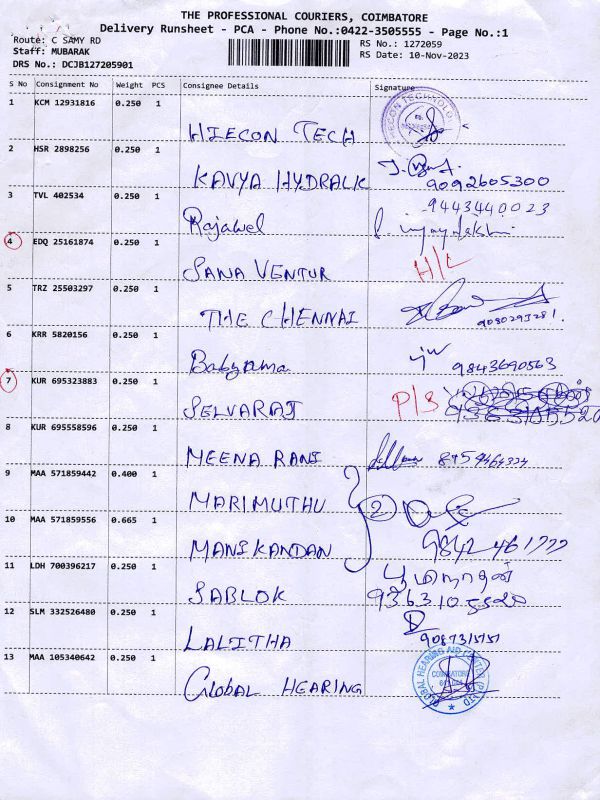 THE PROFESSIONAL COURIERS, COIMBATORE
Delivery Runsheet - PCA - Phone No.:0422-3505555 - Page No.:1
Route: C SAMY RD
RS No.: 1272059
Staff: MUBARAK
RS Date: 10-Nov-2023
DRS No.: DCJB127205901
S No Consignment No Weight PCS Consignee Details Signature
1 KCM 12931816 0.250 1
HIECON TECH
2 HSR 2898256 0.250 1
KAVYA HYDRALIK 9092605300
3 TVL 402534 0.250 1 9443440023
Rajavel
4 EDQ 25161874 0.250 1
SANA VENTUR H/L
5 TRZ 25503297 0.250 1
THE CHENNAI 9080293281.
6 KRR 5820156 0.250 1
Babyrama 9843690563
7 KUR 695323883 0.250 1
SELVARAJ P/S
8 KUR 695558596 0.250 1
MEENA RANI
9 MAA 571859442 0.400 1
MARIMUTHU 2
10 MAA 571859556 0.665 1
MANIKANDAN 9842461777
11 LDH 700396217 0.250 1
SABLOK
12 SLM 332526480 0.250 1
LALITHA
13 MAA 105340642 0.250 1
GLOBAL HEARING
GLOBAL HEARING AID CENTER (P) LTD
COIMBATORE